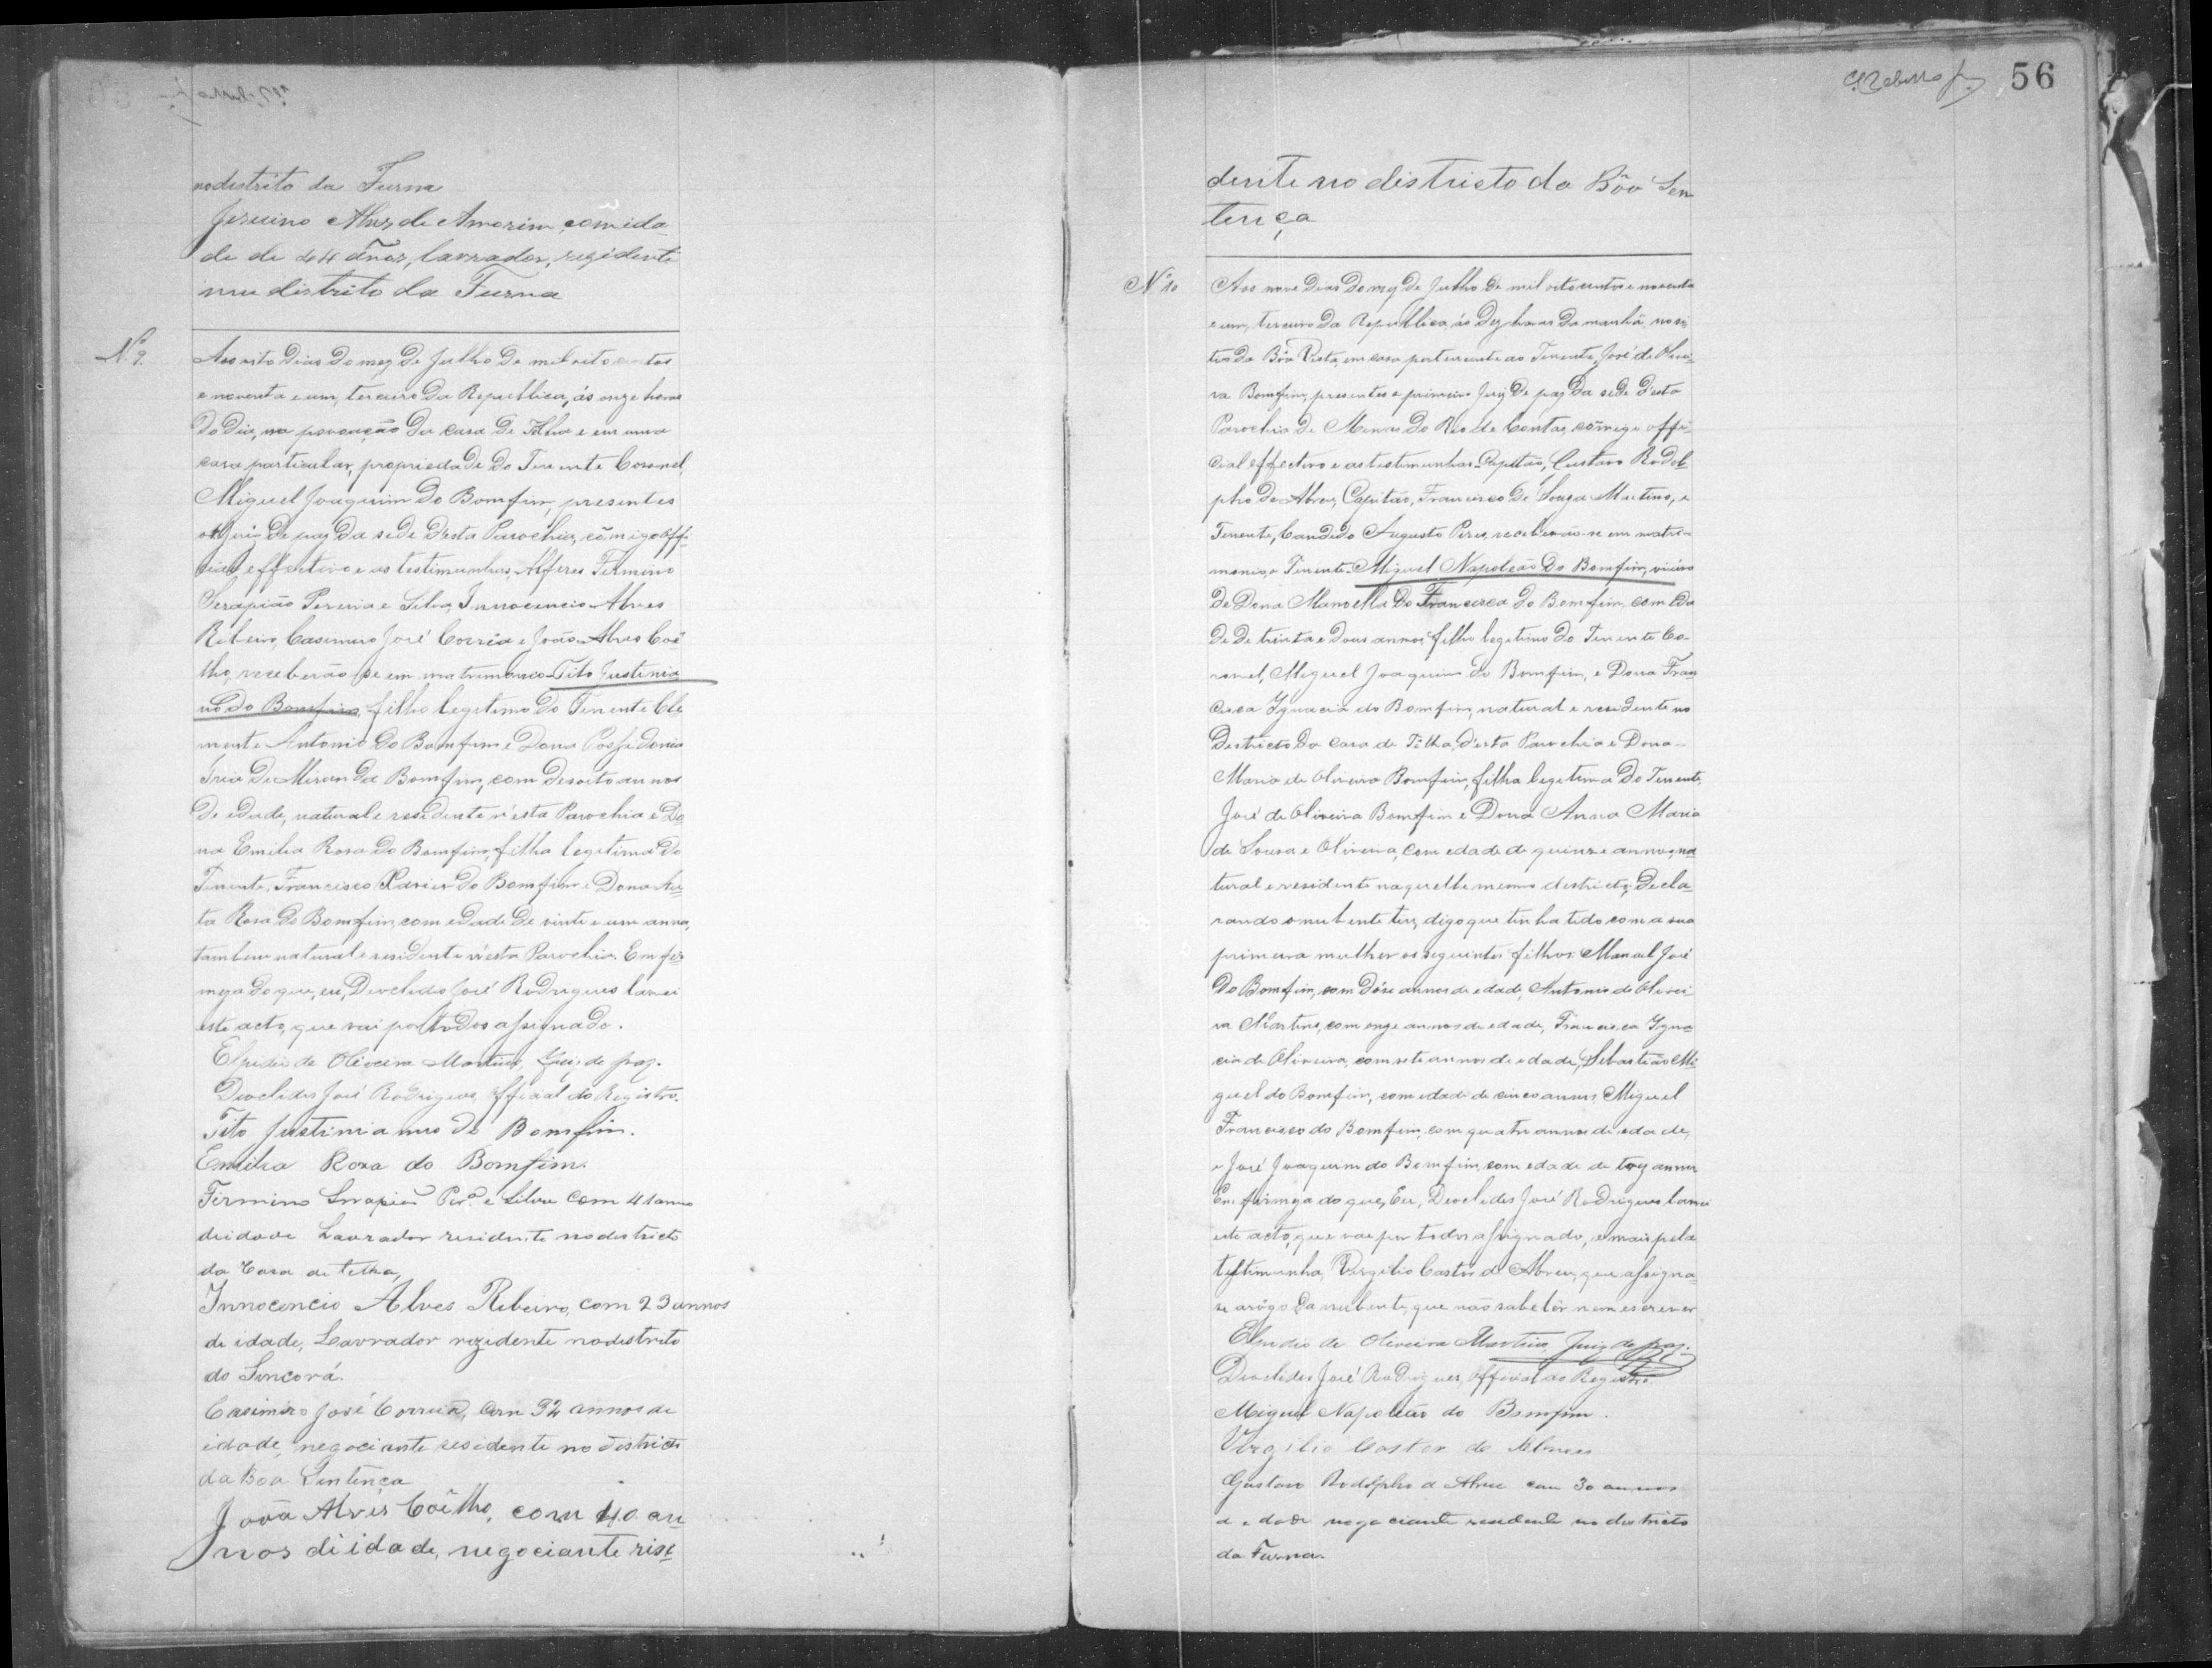 no distrito da Furna
Jesuino Alvz de Amorim, com ida
de de 44 años, lavrador, rezidente
nu distrito da Furna
Nº 9. Aos oito dias do mez de Julho de mil oito centos
e noventa e um, terceiro da Republica, ás onze horas
do dia, na povoação da Casa de Telha e em uma
casa particular, propriedade do Tenente Coronel
Miguel Joaquim do Bomfim, presentes
o Juiz de paz da séde d'esta Parochia, cõmigo offi-
cial effectivo e as testimunhas, Alferes Firmino
Serapião Pereira e Silva, Innocencio Alves
Ribeiro, Casimiro José Corrêa e João Alves Coê
lho, receberão se em matrimonio Tito Justinia
no do Bomfim, filho legitimo do Tenente Cle
mente Antonio do Bomfim e Dona Possidonia
Iria de Miranda Bomfim, com desoito annos
de edade, natural e residente n'ésta Parochia e Do
na Emilia Rosa do Bomfim, filha legitima do
Tenente, Francisco Xavier do Bomfim e Dona
ta Rosa do Bomfim, com edade de vinte e um annos,
tambem natural e residente n'ésta Parochia. Em fir
meza do que, eu, Deoclides José Rodrigues lavrei
este acto, que vai por todos assignado.
Elpidio de Oliveira Martins, Juiz de paz.
Deoclides José Rodrigues, Official do Registro.
Tito Justinianno do Bomfim.
Emilia Roza do Bomfim.
Firmino Serapião Perª e Silva com 41 annos
de idade Lavrador residente no destricto
da Casa de telha,
Innocencio Alves Ribeiro, com 23 annos
de idade, Lavrador rezidente no distrito
do Sincorá.
Casimiro José Correia, com 32 annos de
idade, negociante residente no districto
da Boa Sentença
João Alves Coêlho, com 40 an
nos di idade, negociante rise
56
dente no districto da Bôa Sen
tença
Nº 10 Aos nove dias do mez de Julho de mil oito centos e noventa
e um, terceiro da Republica, ás dez horas da manhã, no si
tio da Bôa Vista, em casa pertencente ao Tenente, José de Olivei-
ra Bomfim, presentes o primeiro Juiz de paz da séde d'ésta
Parochia de Minas do Rio de Contas, cõmigo offi-
cial effectivo e as testimunhas Capitão, Gustavo Rodol-
pho de Abreu, Capitão, Francisco de Souza Martins, e
Tenente, Candido Augusto Pires, receberão-se em matri-
monio, o Tenente Miguel Napoleão do Bomfim, viúvo
de Dona Manoella do Francisca do Bomfim, com ida
de de trinta e dous annos, filho legitimo do Tenente Co-
ronel, Miguel Joaquim do Bomfim, e Dona Fran
cisca Ignacia do Bomfim, natural e residente no
Districto da Casa de Têlha, d'ésta Parochia e Dona
Maria de Oliveira Bomfim, filha legitima do Tenente,
José de Oliveira Bomfim e Dona Anna Maria
de Sousa e Oliveira, com edade de quinze annos, na
tural e residente naquelle mesmo districto, decla-
rando o nubente ter, digo que tinha tido com a sua
primeira mulher os seguintes filhos: Manoel José
do Bomfim, com dôse annos de edade, Antonio de Olivei
ra Martins, com onze annos de edade, Francisca Igna
cia de Oliveira, com sete annos de edade, Sebastião Mi
guel do Bomfim, com edade de cinco annos, Miguel
Francisco do Bomfim, com quatro annos de edade,
e José Joaquim do Bomfim, com edade de trez annos
Em firmeza do que, Eu, Deoclides José Rodrigues lavrei
este acto, que vai por todos assignado, e mais pela
testimunha, Virgilio Castor de Abreu, que assigna-
se arôgo da nubente, que não sabe lêr nem escrever
Elpidio de Oliveira Martins, Juiz de paz.
Deoclides José Rodrigues, Official do Registro.
Miguel Napoleão do Bomfim.
Virgilio Castor de Abreu
Gustavo Rodolpho de Abreu com 30 annos
de edade negociante residente no districto
da Furna.